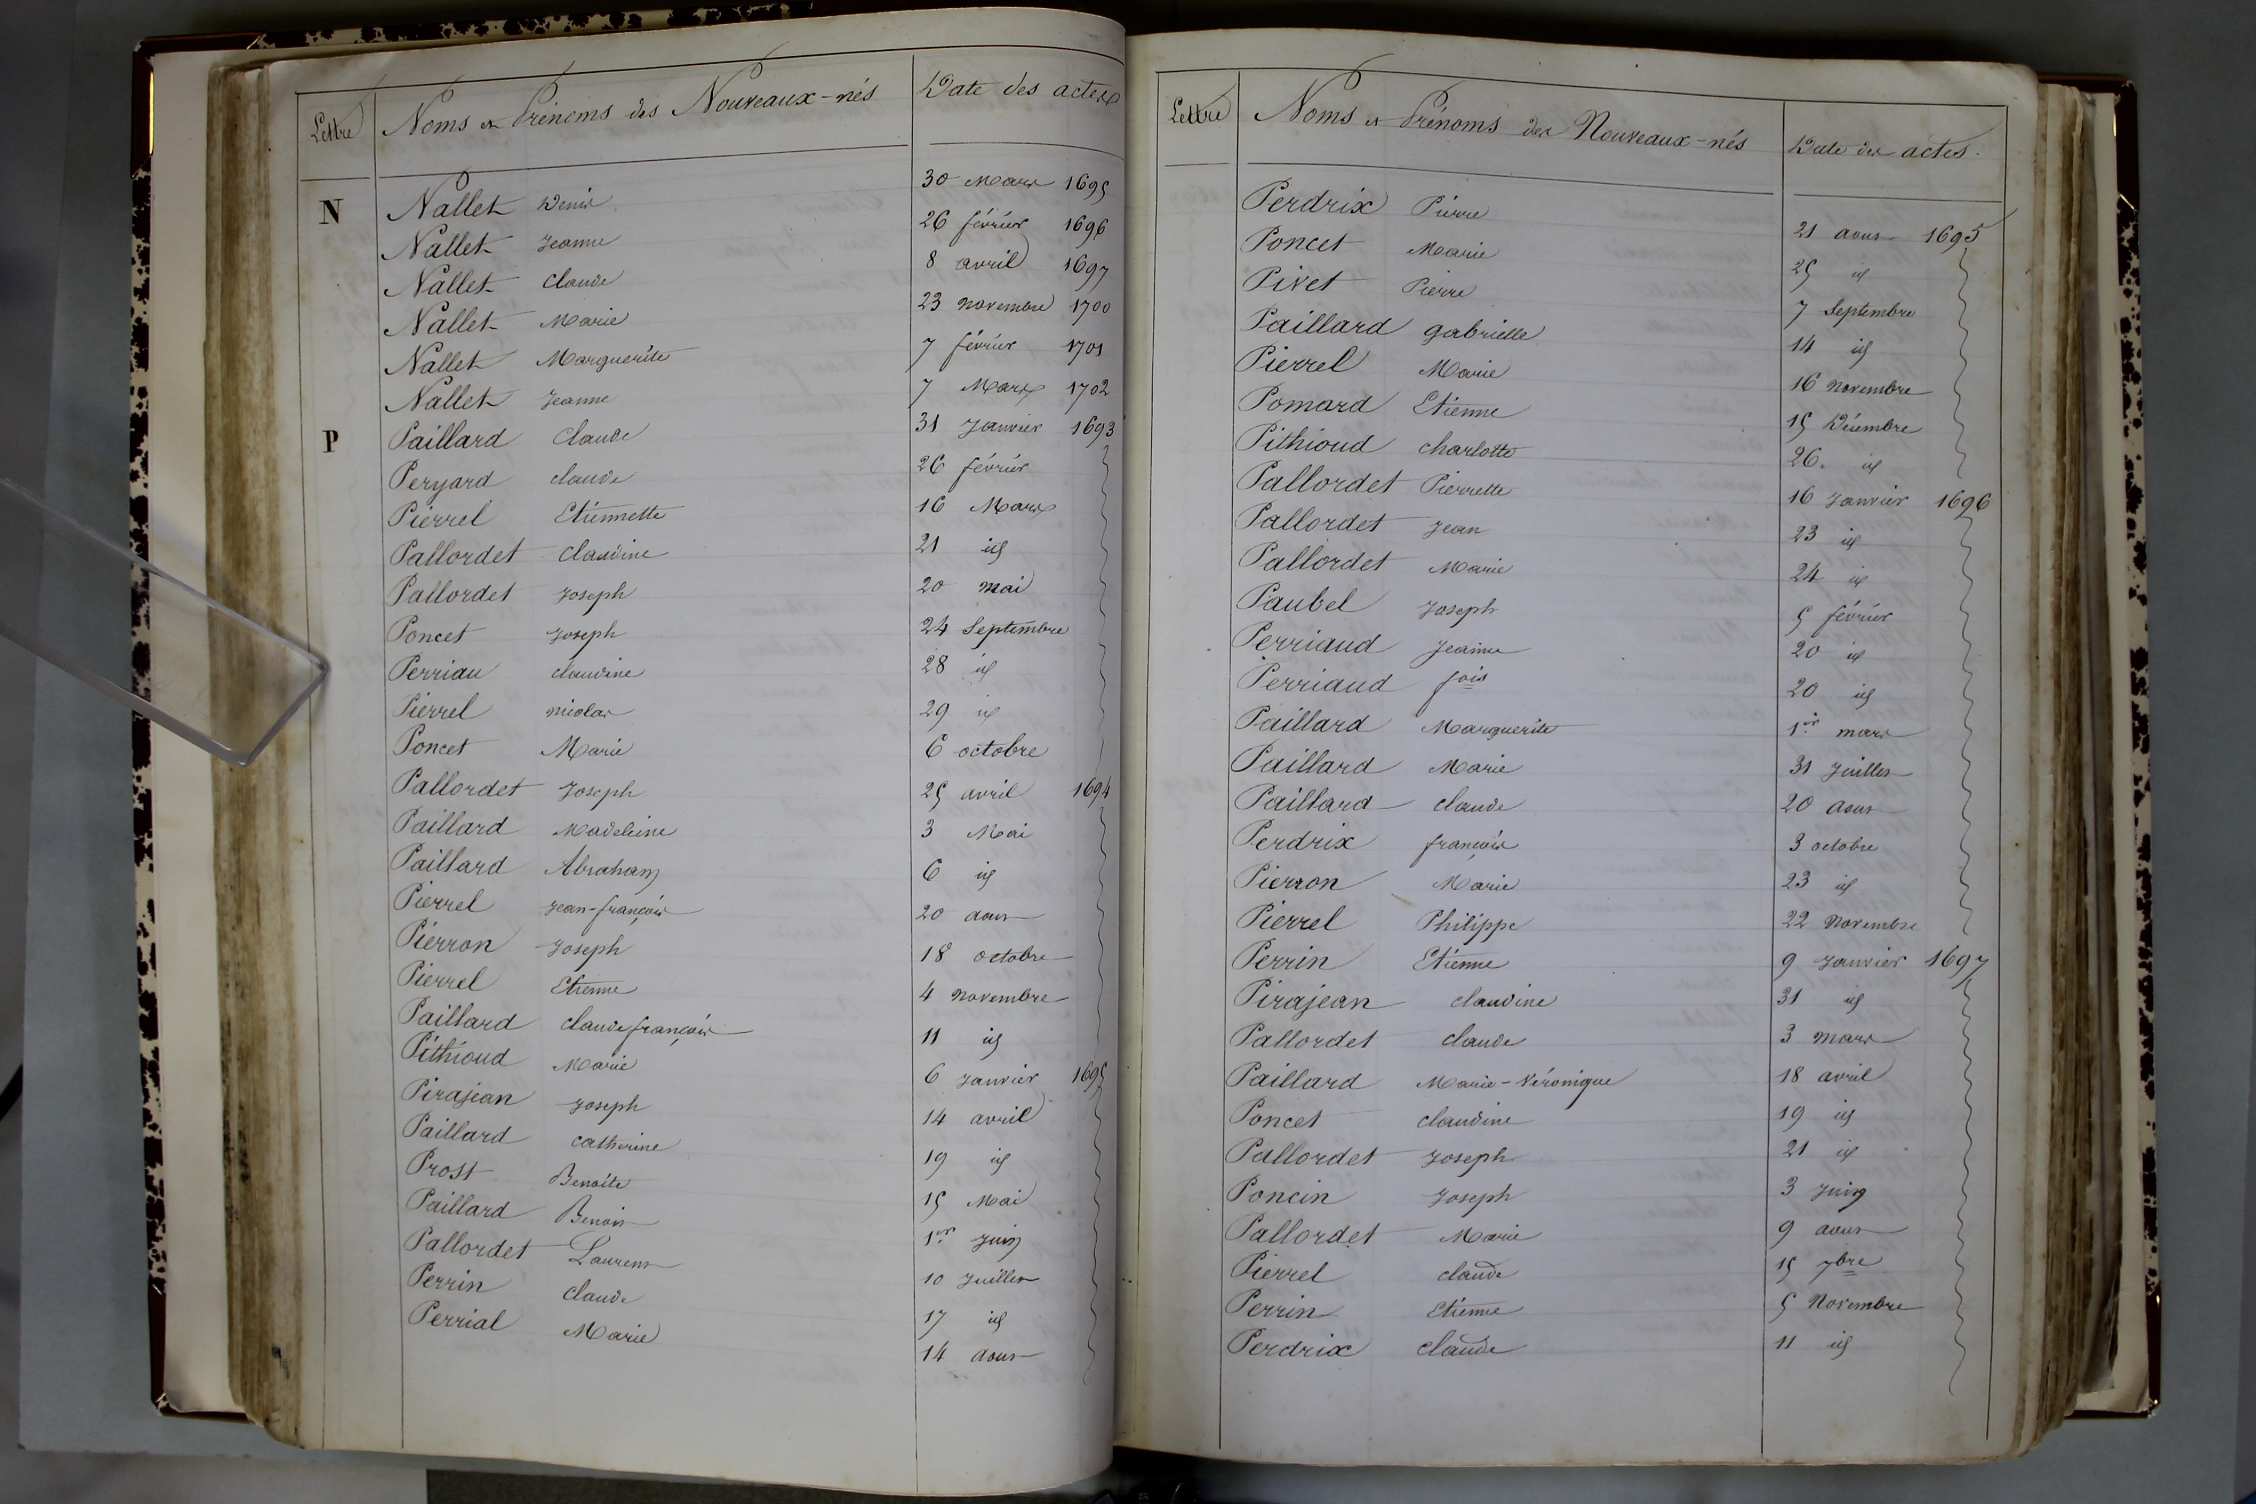 Lettre Noms et Prénoms des Nouveaux-nés Date des actes
N Nallet Denis 30 Mars 1695
Nallet Jeanne 26 février 1696
Nallet Claude 8 avril 1697
Nallet Marie 23 novembre 1700
Nallet Marguerite 7 février 1701
Nallet Jeanne 7 Mars 1702
P Paillard Claude 31 Janvier 1693
Peryard claude 26 février
Pierrel Etiennette 16 Mars
Pallordet Claudine 21 id
Pallordet Joseph 20 mai
Poncet Joseph 24 Septembre
Perriau claudine 28 id
Pierrel nicolas 29 id
Poncet Marie 6 octobre
Pallordet Joseph 25 avril 1694
Paillard Madeleine 3 Mai
Paillard Abraham 6 id
Pierrel Jean-françois 20 aout
Piérron Joseph 18 octobre
Pierrel Etienne 4 novembre
Paillard claude françois 11 id
Pithioud Marie 6 Janvier 1695
Pirajean Joseph 14 avril
Paillard catherine 19 id
Prost Benoite 15 Mai
Paillard Benoit 1er Juin
Pallordet Laurent 10 Juillet
Perrin claude 17 id
Perrial Marie 14 aout
Lettre Noms et Prénoms des Nouveaux-nés Date des actes.
Perdrix Pierre 21 aout 1695
Poncet Marie 25 id
Pivet Pierre 7 Septembre
Paillard gabrielle 14 id
Pierrel Marie 16 novembre
Pomard Etienne 15 Décembre
Pithioud charlotte 26. id
Pallordet Pierrette 16 Janvier 1696
Pallordet Jean 23 id
Pallordet Marie 24 id
Paubel Joseph 5 février
Perriaud Jeanne 20 id
Perriaud fois 20 id
Paillard Marguerite 1er mars
Paillard Marie 31 Juillet
Paillard claude 20 aout
Perdrix françois 3 octobre
Pierron Marie 23 id
Pierrel Philippe 22 novembre
Perrin Etienne 9 Janvier 1697
Pirajean claudine 31 id
Pallordet claude 3 mars
Paillard Marie-Véronique 18 avril
Poncet claudine 19 id
Pallordet Joseph 21 id
Poncin Joseph 3 Juin
Pallordet Marie 9 aout
Pierrel claude 15 7bre
Perrin Etienne 5 Novembre
Perdrix claude 11 id